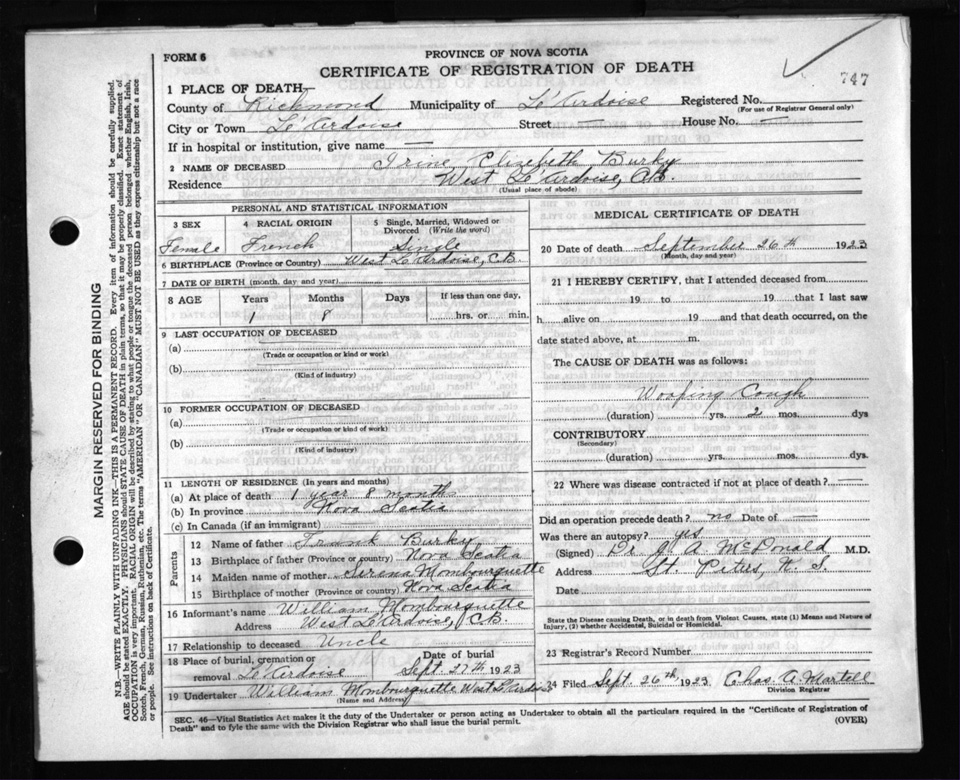 FORM 6
PROVINCE OF NOVA SCOTIA
CERTIFICATE OF REGISTRATION OF DEATH
747
1 PLACE OF DEATH—
County of Richmond Municipality of Le'Ardoise Registered No.
(For use of Registrar General only)
City or Town Le'Ardoise Street — House No. —
If in hospital or institution, give name —
2 NAME OF DECEASED Irine Elizebeth Burky
Residence West Le'Ardoise, C.B.
(Usual place of abode)
PERSONAL AND STATISTICAL INFORMATION
3 SEX
Female
4 RACIAL ORIGIN
French
5 Single, Married, Widowed or Divorced (Write the word)
Single
6 BIRTHPLACE (Province or Country) West Le'Ardoise, C.B.
7 DATE OF BIRTH (month, day and year)
8 AGE Years Months Days If less than one day,
1 8 hrs. or min.
9 LAST OCCUPATION OF DECEASED
(a)
(Trade or occupation or kind or work)
(b)
(Kind of industry)
10 FORMER OCCUPATION OF DECEASED
(a)
(Trade or occupation or kind of work)
(b)
(Kind of industry)
11 LENGTH OF RESIDENCE (In years and months)
(a) At place of death 1 year 8 months
(b) In province Nova Scotia
(c) In Canada (if an immigrant)
Parents
12 Name of father Frank Burky
13 Birthplace of father (Province or country) Nova Scotia
14 Maiden name of mother Serina Mombourquette
15 Birthplace of mother (Province or country) Nova Scotia
16 Informant's name William Mombourquette
Address West Le'Ardoise, C.B.
17 Relationship to deceased Uncle
18 Place of burial, cremation or removal Le'Ardoise
Date of burial Sept 27th 1923
19 Undertaker William Mombourquette West Le'Ardoise
(Name and Address)
MEDICAL CERTIFICATE OF DEATH
20 Date of death September 26th 1923
(Month, day and year)
21 I HEREBY CERTIFY, that I attended deceased from
19 to 19 that I last saw
h alive on 19 and that death occurred, on the
date stated above, at m.
The CAUSE OF DEATH was as follows:
Wooping Cough
(duration) yrs. 2 mos. dys
CONTRIBUTORY
(Secondary)
(duration) yrs. mos. dys.
22 Where was disease contracted if not at place of death? —
Did an operation precede death? no Date of —
Was there an autopsy? yes
(Signed) Dr J. A. McDonald M.D.
Address St. Peters, N. S.
Date
State the Disease causing Death, or in death from Violent Causes, state (1) Means and Nature of
Injury, (2) whether Accidental, Suicidal or Homicidal.
23 Registrar's Record Number
24 Filed Sept. 26th, 1923 Chas. A. Martell
Division Registrar
SEC. 46—Vital Statistics Act makes it the duty of the Undertaker or person acting as Undertaker to obtain all the particulars required in the "Certificate of Registration of
Death" and to fyle the same with the Division Registrar who shall issue the burial permit.
(OVER)
MARGIN RESERVED FOR BINDING
N.B.—WRITE PLAINLY WITH UNFADING INK—THIS IS A PERMANENT RECORD. Every item of information should be carefully supplied.
AGE should be stated EXACTLY. PHYSICIANS should STATE CAUSE OF DEATH in plain terms, so that it may be properly classified. Exact statement of
OCCUPATION is very important. RACIAL ORIGIN will be described by stating to what people or tongue the deceased person belonged whether English, Irish,
Scotch, French, German, Russian, Ruthenian, etc. The terms "AMERICAN" OR "CANADIAN" MUST NOT BE USED as they express citizenship but not a race
or people. See instructions on back of Certificate.